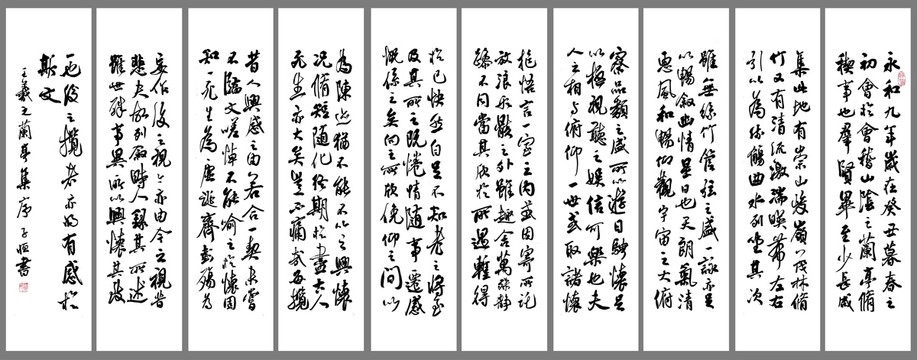 永和九年歲在癸丑暮春之
初會於會稽山陰之蘭亭脩
稧事也群賢畢至少長咸
集此地有崇山峻嶺茂林脩
竹又有清流激湍暎帶左右
引以為流觴曲水列坐其次
雖無絲竹管弦之盛一詠亦足
以暢敘幽情是日也天朗氣清
惠風和暢仰觀宇宙之大俯
察品類之盛所以遊目騁懷足
以極視聽之娛信可樂也夫
人之相與俯仰一世或取諸懷
抱悟言一室之內或因寄所託
放浪形骸之外雖趣舍萬殊靜
躁不同當其欣於所遇暫得
於己快然自足不知老之將至
及其所之既惓情隨事遷感
慨係之矣向之所欣俛仰之間以
為陳迹猶不能不以之興懷
況脩短隨化終期於盡古人
死生亦大矣豈不痛哉每攬
昔人興感之由若合一契未嘗
不臨文嗟悼不能喻之於懷固
知一死生為虛誕齊彭殤為
妄作後之視今亦由今之視昔
悲夫故列敘時人錄其所述
雖世殊事異所以興懷其致
一也後之攬者亦將有感於
斯文
王羲之蘭亭集序 子恒書